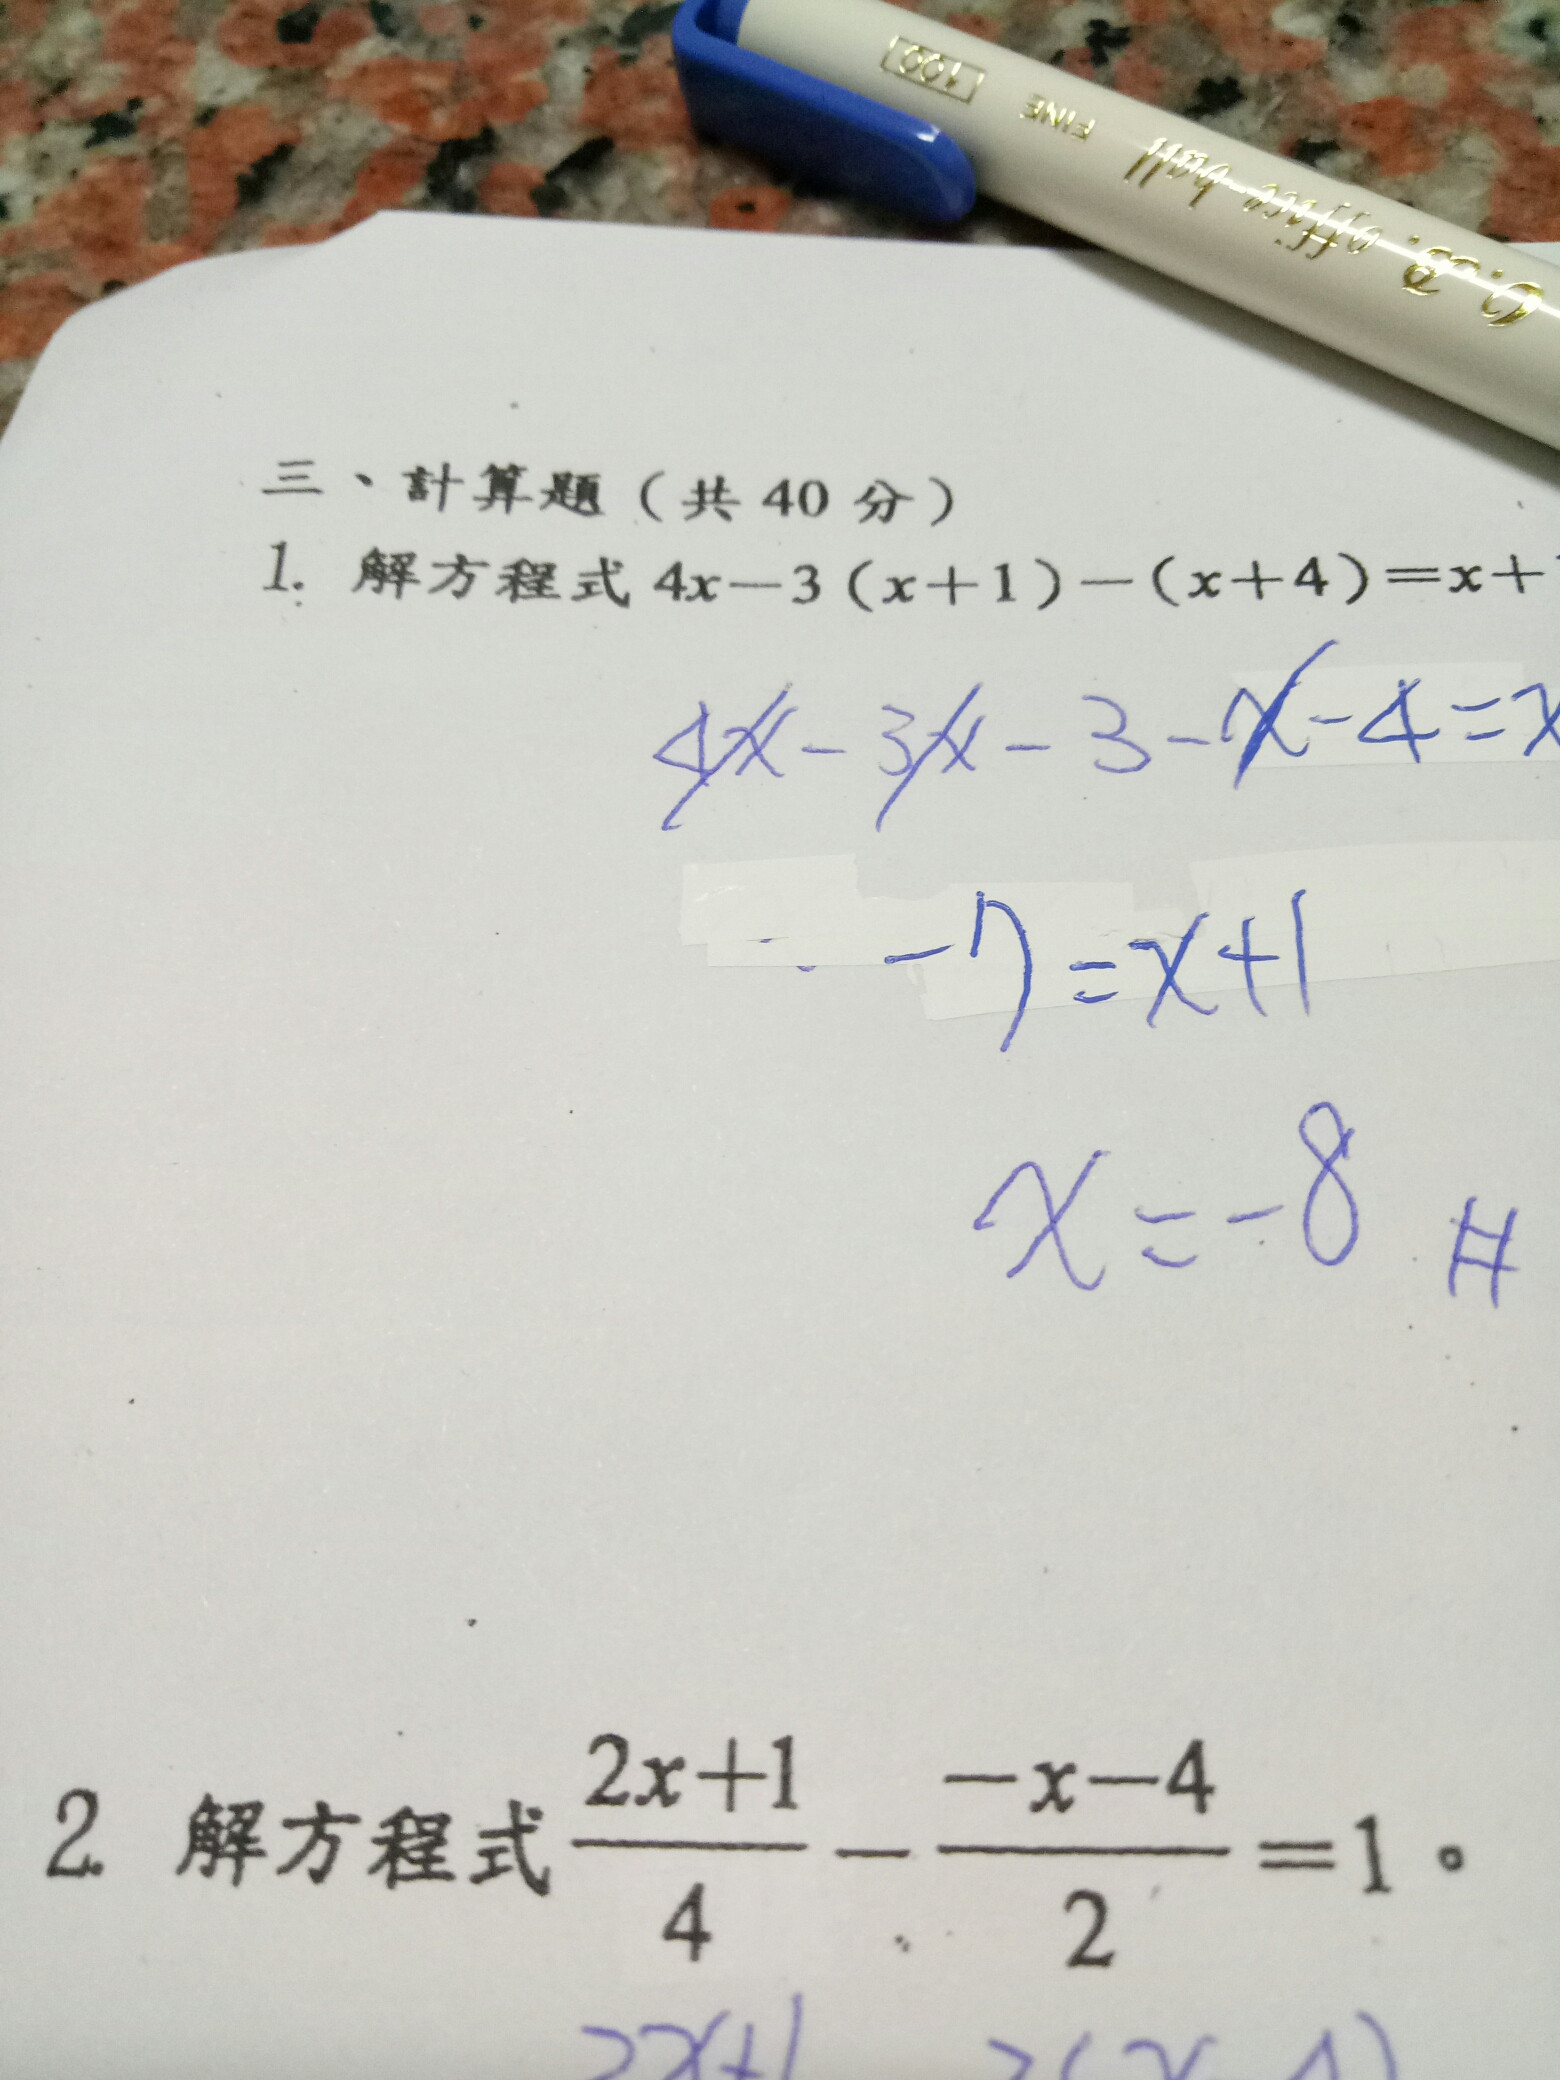 100 FINE O.B. office ball
三、計算題（共 40 分）
1. 解方程式 4x－3（x＋1）－（x＋4）＝x＋
4x - 3x - 3 - x - 4 = x
-7 = x+1
x = -8 #
2. 解方程式 \frac{2x＋1}{4}－\frac{－x－4}{2}＝1。
2x+1